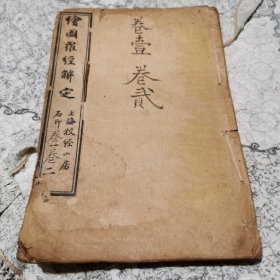 繪圖羅經解定
上海校經山房
石印卷一卷二
卷壹 卷貳